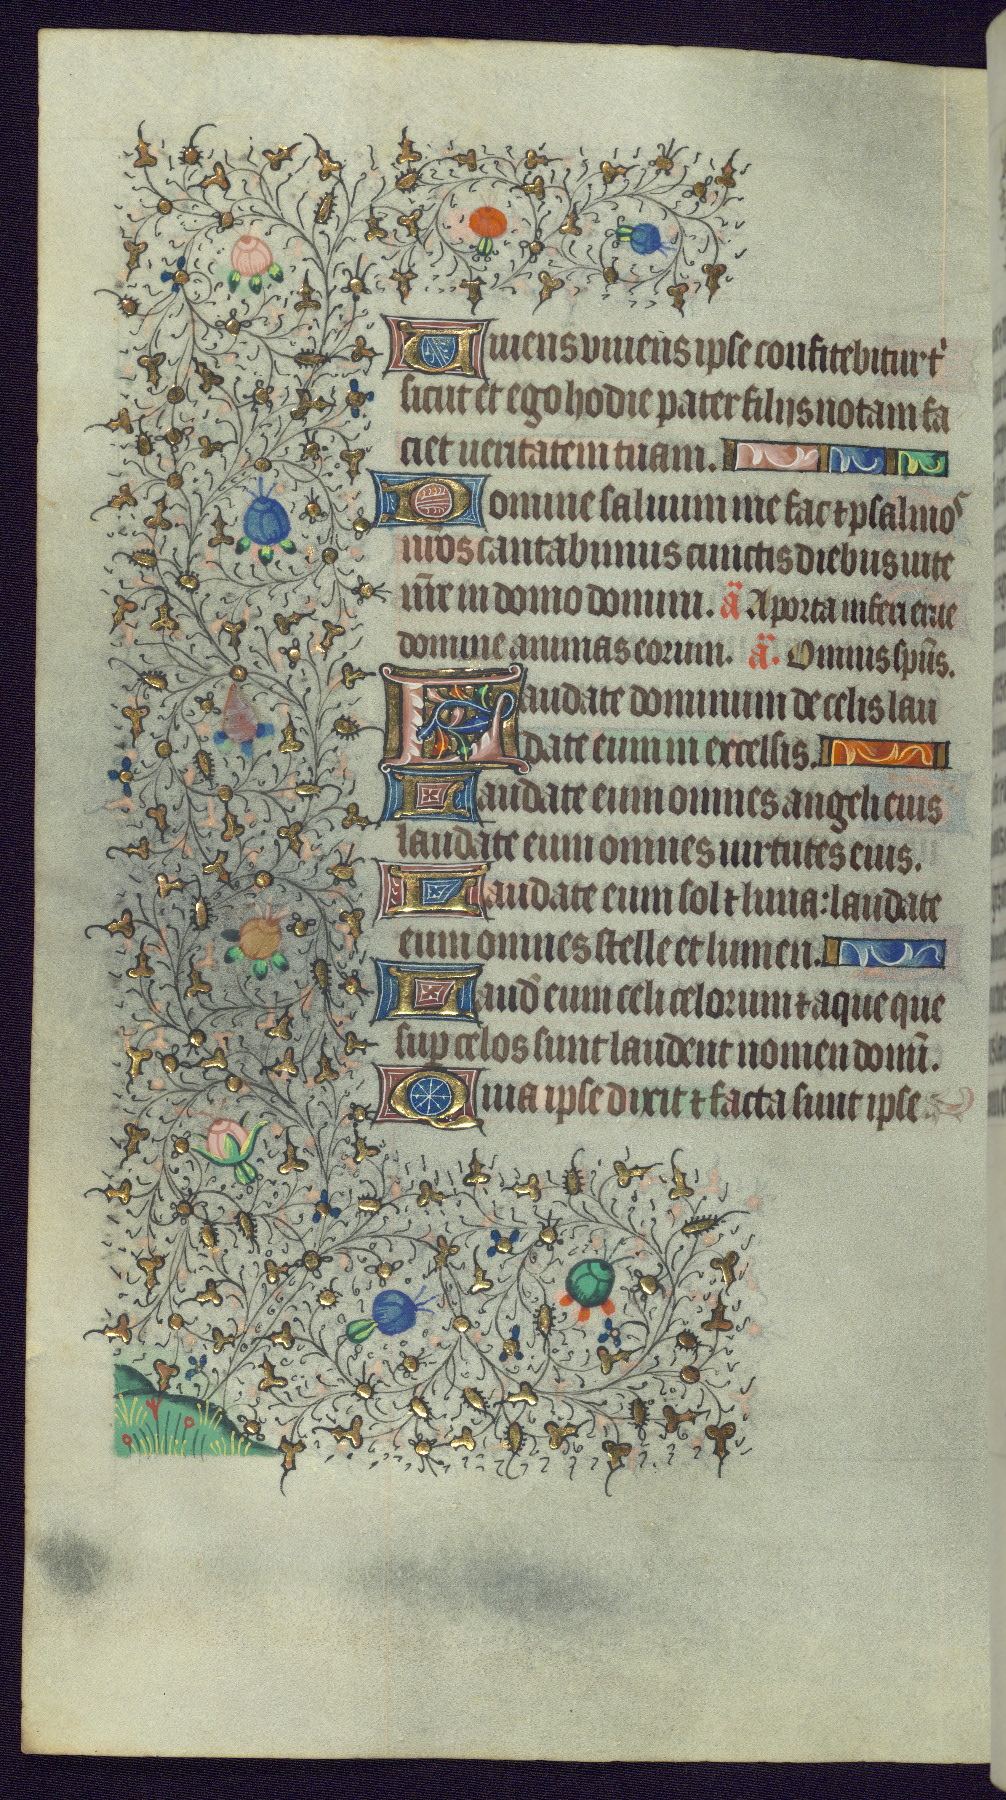 Uiuens uiuens ipse confitebitur t'
sicut et ego hodie pater filijs notam fa
ciet ueritatem tuam.
Domine saluum me fac ⁊ psalmos
nr̄os cantabimus cunctis diebus uite
nr̄e in domo domini. ā A porta inferi erue
domine animas eorum. ā. Omnis sp̄us.
Laudate dominum de celis lau
date eum in excelsis.
Laudate eum omnes angeli eius
laudate eum omnes uirtutes eius.
Laudate eum sol ⁊ luna: laudate
eum omnes stelle et lumen.
Laud eum celi celorum ⁊ aque que
sup celos sunt laudent nomen domī.
Quia ipse dixit ⁊ facta sunt ipse